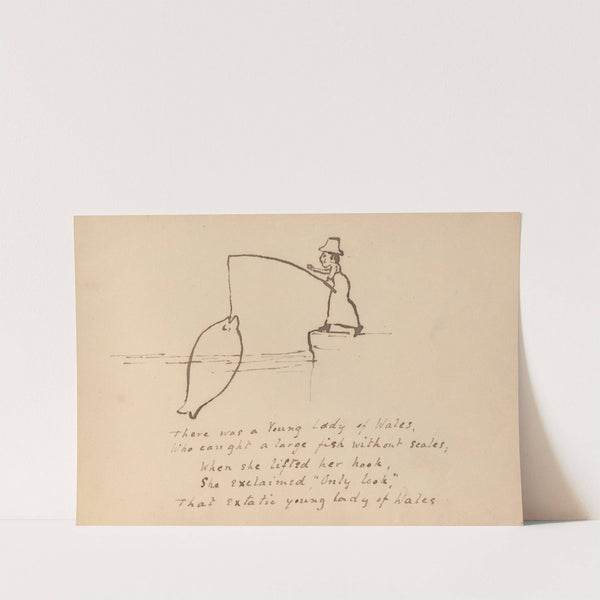 There was a Young Lady of Wales,
Who caught a large fish without scales;
When she lifted her hook,
She exclaimed, "Only look,"
That extatic young lady of Wales